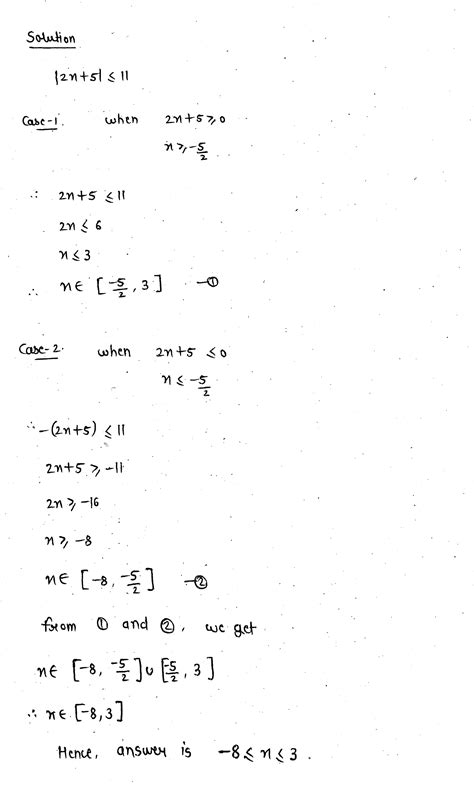 Solution
|2x+5| ≤ 11
Case-1. when 2x+5 ≥ 0
x ≥ -5/2
∴ 2x+5 ≤ 11
2x ≤ 6
x ≤ 3
∴ x ∈ [-5/2, 3] —①
Case-2. when 2x+5 ≤ 0
x ≤ -5/2
∵ -(2x+5) ≤ 11
2x+5 ≥ -11
2x ≥ -16
x ≥ -8
x ∈ [-8, -5/2] —②
from ① and ②, we get
x ∈ [-8, -5/2] ∪ [-5/2, 3]
∴ x ∈ [-8, 3]
Hence, answer is -8 ≤ x ≤ 3.